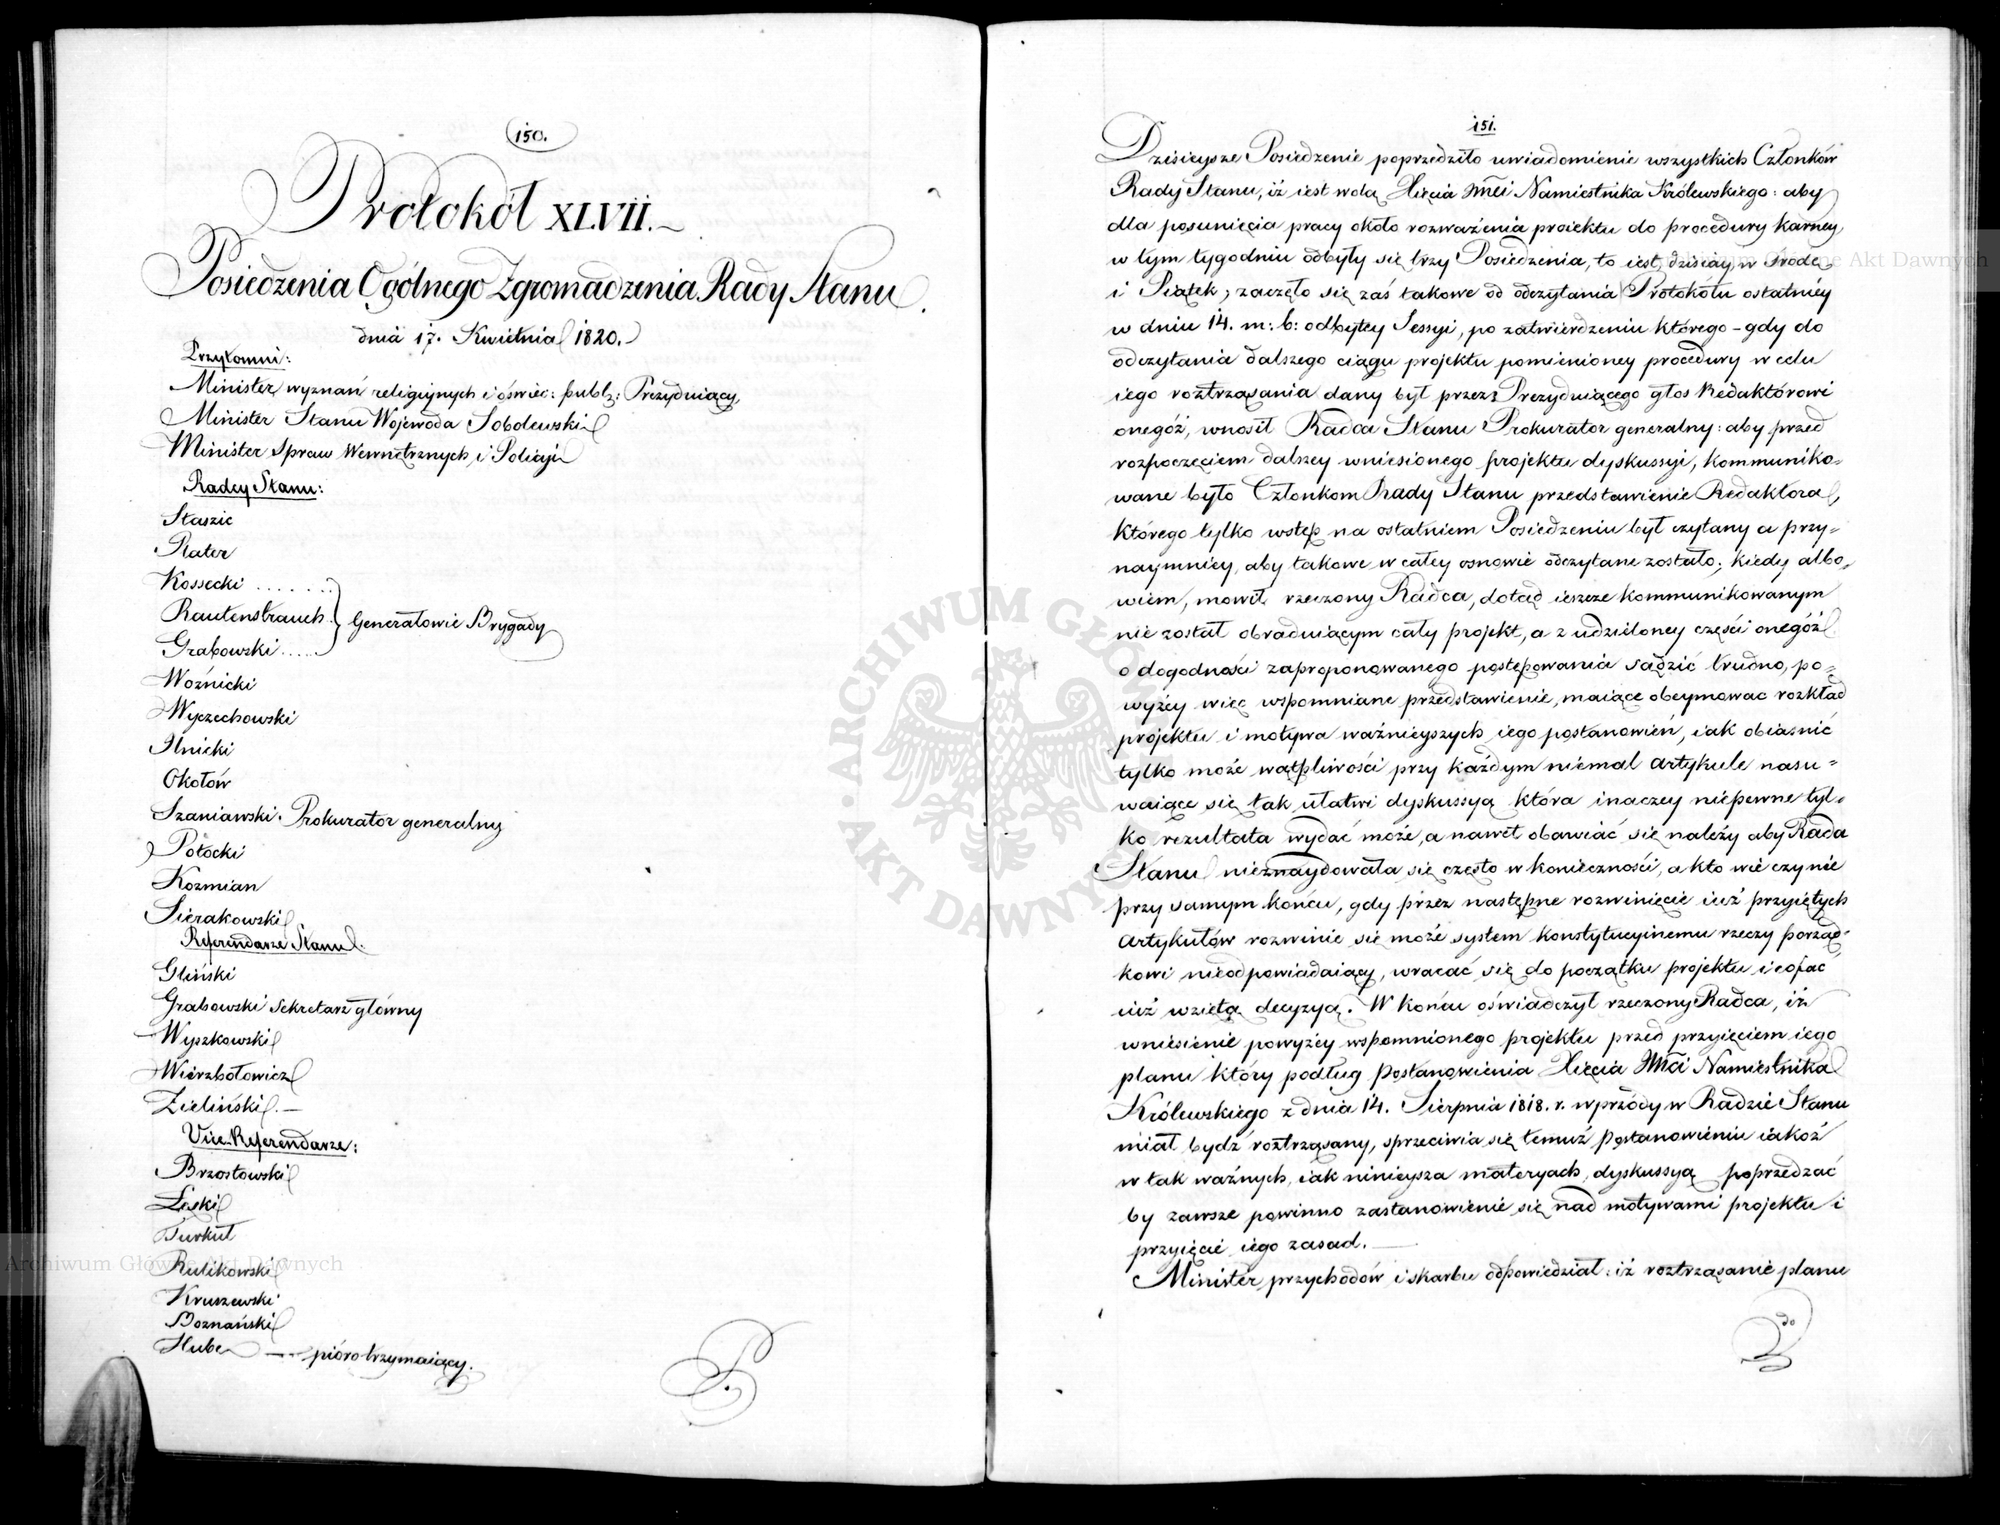 150.
Protokół XLVII.
Posiedzenia Ogólnego Zgromadzenia Rady Stanu.
dnia 17. Kwietnia 1820.
Przytomni:
Minister wyznań religiynych i oświec: publ: Prezyduiący,
Minister Stanu Wojewoda Sobolewski
Minister Spraw Wewnętrznych i Policyi
Radcy Stanu:
Staszic
Plater
Kossecki . . . . . . .
Rautenstrauch. Generałowie Brygady
Grabowski . . . . .
Woźnicki
Wyczechowski
Ilnicki
Okołów
Szaniawski. Prokurator generalny
Potocki
Kozmian
Sierakowski
Referendarze Stanu.
Gliński
Grabowski Sekretarz główny
Wyszkowski
Wierzbołowicz
Zieliński. —
Vice-Referendarze:
Brzostowski
Łęski
Turkuł
Rulikowski
Kruszewski
Poznański
Hube — pióro trzymaiący.
151.
Dzisieysze Posiedzenie poprzedziło uwiadomienie wszystkich Członków
Rady Stanu, iż iest wolą Xięcia Jmci Namiestnika Królewskiego: aby
dla posunięcia pracy około rozważenia proiektu do procedury karney,
w tym tygodniu odbyły się trzy Posiedzenia, to iest, dzisiay, w Środę
i Piątek; zaczęło się zaś takowe od odczytania Protokółu ostatniey
w dniu 14. m: b: odbytey Sessyi, po zatwierdzeniu którego – gdy do
odczytania dalszego ciągu projektu pomienioney procedury w celu
iego roztrząsania dany był przez Prezyduiącego głos Redaktorowi
onegóż, wnosił Radca Stanu Prokurator generalny: aby przed
rozpoczęciem dalszey wniesionego projektu dyskussyi, kommuniko=
wane było Członkom Rady Stanu przedstawienie Redaktora,
którego tylko wstęp na ostatniem Posiedzeniu był czytany a przy=
naymniey, aby takowe w całey osnowie odczytane zostało; kiedy albo,
wiem, mówił rzeczony Radca, dotąd ieszcze kommunikowanym
nie został obraduiącym cały projekt, a z udzieloney części onegóż
o dogodności zaproponowanego postępowania sądzić trudno, po=
wyżey więc wspomniane przedstawienie, maiące obeymować rozkład
projektu i motywa ważnieyszych iego postanowień, iak obiasnić
tylko może wątpliwości przy każdym niemal artykule nasu=
waiące się tak ułatwi dyskussyą która inaczey niepewne tyl=
ko rezultata wydać może, a nawet obawiać się należy aby Rada
Stanu nieznaydowała się często w konieczności, a kto wie czy nie
przy samym końcu, gdy przez następne rozwinięcie iuż przyiętych
artykułów rozwinie się może system konstytucyinemu rzeczy porząd=
kowi nieodpowiadaiący, wracać się do początku projektu i cofać
iuż wziętą decyzyą. W końcu oświadczył rzeczony Radca, iż
wniesienie powyżey wspomnionego projektu przed przyięciem iego
planu który podług Postanowienia Xięcia Jmci Namiestnika
Królewskiego z dnia 14. Sierpnia 1818. r. wprzódy w Radzie Stanu
miał bydź roztrząsany, sprzeciwia się temuż Postanowieniu iakoż
w tak ważnych, iak ninieysza materyach, dyskussyą poprzedzać
by zawsze powinno zastanowienie się nad motywami projektu i
przyięcie iego zasad. —
Minister przychodów i skarbu odpowiedział: iż roztrząsanie planu
do
ARCHIWUM GŁÓWNE AKT DAWNYCH
Archiwum Główne Akt Dawnych
Archiwum Główne Akt Dawnych